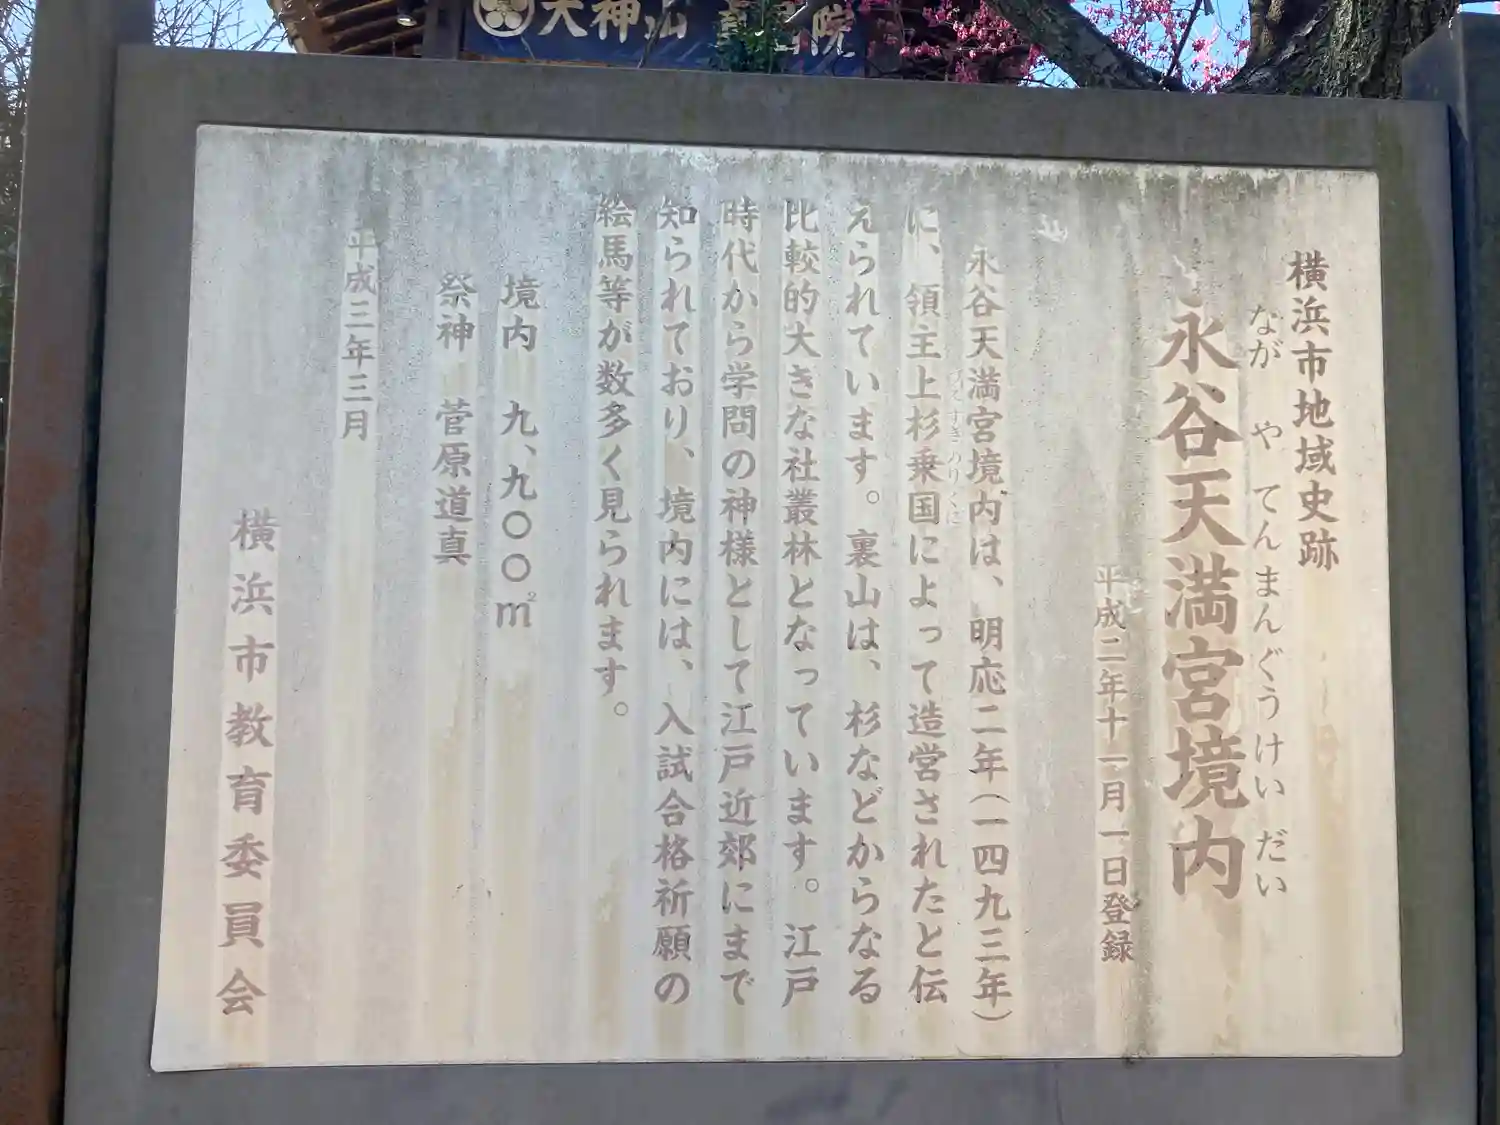 横浜市地域史跡
なが や てんまんぐうけい だい
永谷天満宮境内
平成二年十一月一日登録
永谷天満宮境内は、明応二年（一四九三年）
に、領主上杉乗国によって造営されたと伝
えられています。裏山は、杉などからなる
比較的大きな社叢林となっています。江戸
時代から学問の神様として江戸近郊にまで
知られており、境内には、入試合格祈願の
絵馬等が数多く見られます。
境内 九、九〇〇㎡
祭神 菅原道真
平成三年三月
横浜市教育委員会
天神山
院